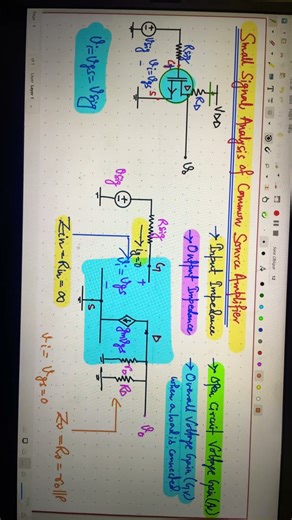 Small Signal Analysis of Common Source Amplifier
→ Input Impedance
→ Output Impedance
→ Open Circuit Voltage Gain (Av)
→ Overall Voltage Gain (Gv)
when a load is connected
VDD
RD
vo
Rsig
G
D
S
vi=vgs
vsig
+
−
vi=vgs=vsig
Rsig
G
D
vo
ig=0
vsig
+
vi=vgs
−
gmvgs
ro
RD
S
Zin=Rin=∞
vi=vgs=0
Zo=Ro=ro||R